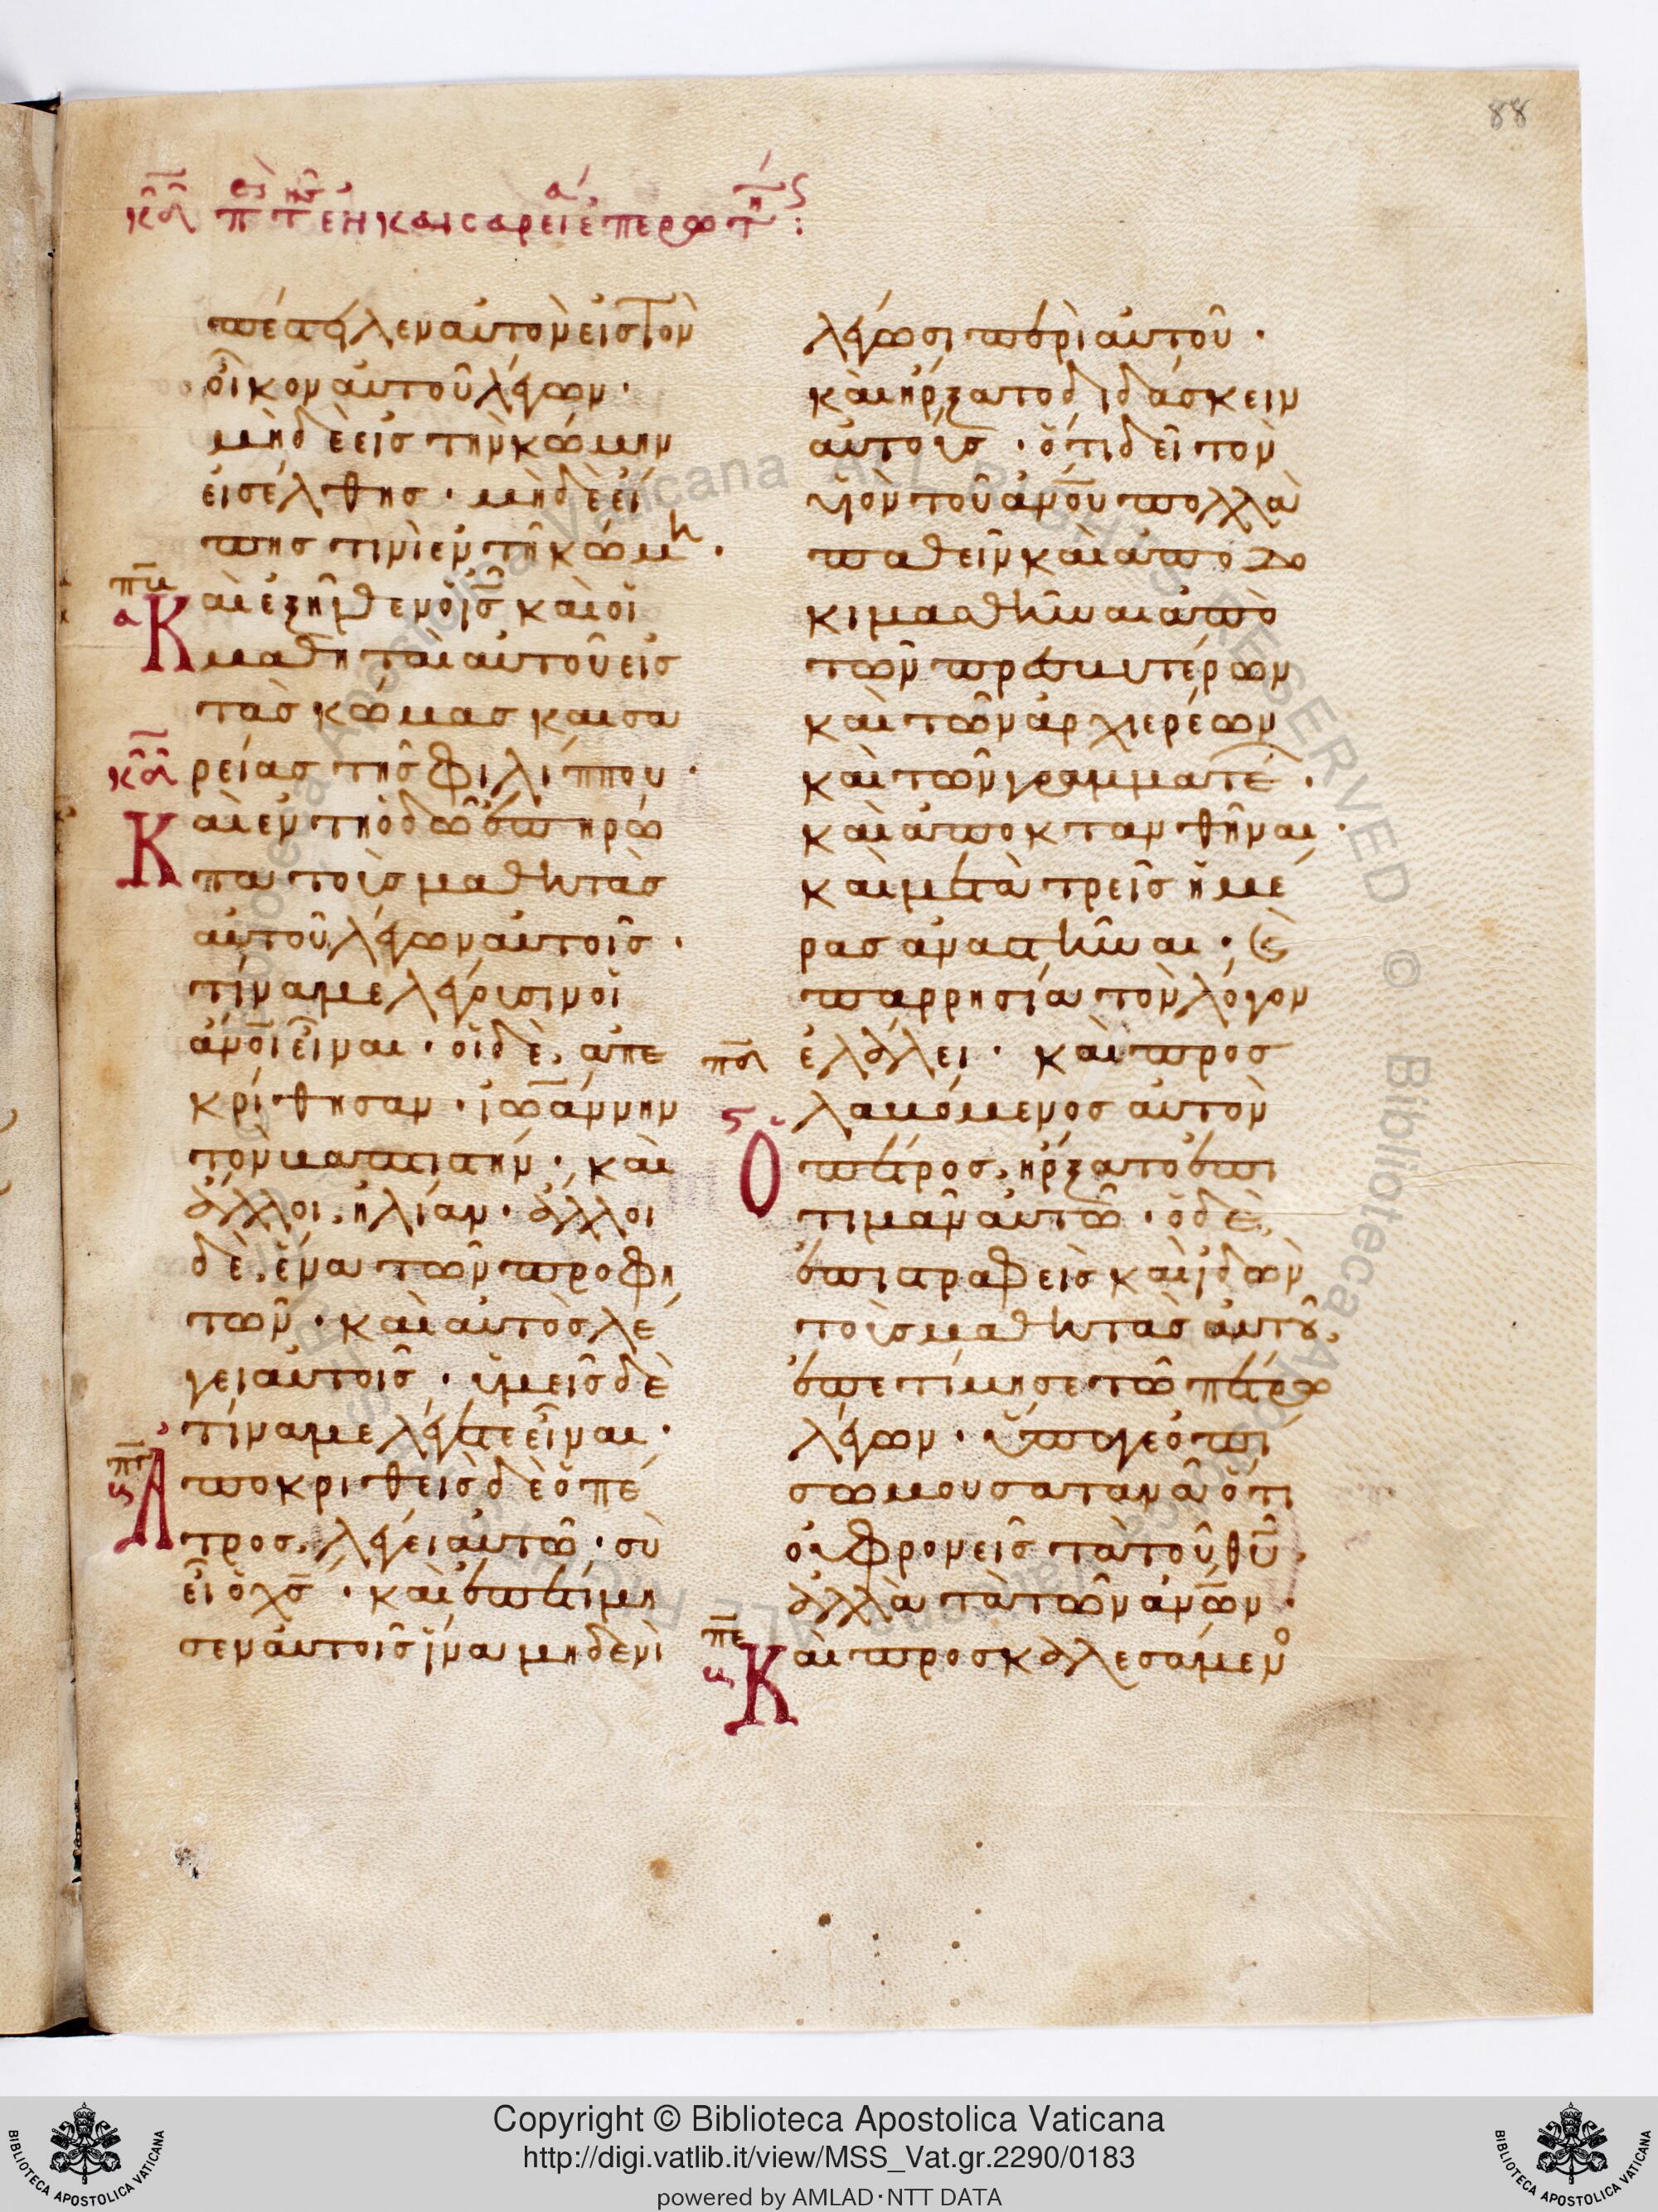 88
κδ περὶ τῆς ἐν καισαρεία ἐπερωτήσ:
πέστειλεν αυτὸν εις τὸν
οἶκον αυτοῦ λέγων·
μὴδὲ εις τὴν κώμην
εἰσέλθησ· μὴδὲ εἴ
πησ τινὶ ἐν τῆ κώμη·
πη
α
Καὶ ἐξῆλθεν ὁ ις καὶ οἱ
μαθηταὶ αυτοῦ εἰσ
τὰσ κώμασ καισα
κδ
ρείασ τῆσ φιλίππου·
Καὶ ἐν τῆ ὁδῶ ἐπηρώ
τα τοὺσ μαθητὰσ
αυτοῦ λέγων αυτοῖσ·
τίνα με λέγουσιν οἱ
ανοι εἶναι· οἱ δὲ, ἀπε
κρίθησαν· ἰωάννην
τὸν βαπτιστήν· καὶ
ἄλλοι, ηλίαν· ἄλλοι
δὲ, ἕνα τῶν προφη
τῶν· καὶ αυτὸσ λέ
γει αυτοῖσ· ὑμεῖσ δὲ
τίνα με λέγετε εἶναι·
Ἀποκριθεὶσ δὲ ὁ πέ
τροσ, λέγει αυτῶ· σὺ
εἶ ὁ χσ· καὶ ἐπετίμη
σεν αυτοῖσ ἵνα μηδενὶ
λέγωσι περὶ αυτοῦ·
καὶ ἤρξατο διδάσκειν
αυτοὺσ· ὅτι δεῖ τὸν
υἱὸν τοῦ ανου πολλὰ
παθεῖν καὶ ἀποδο
κιμασθῆναι ἀπὸ
τῶν πρεσβυτέρων
καὶ τῶν ἀρχιερέων
καὶ τῶν γραμματέ·
καὶ ἀποκτανθῆναι·
καὶ μετὰ τρεῖσ ἡμέ
ρασ ἀναστῆναι· καὶ
παρρησία τὸν λόγον
πθ
ἐλάλει· καὶ προσ
λαβόμενοσ αυτὸν
Ὁ πέτροσ, ἤρξατο ἐπι
τιμᾶν αυτῶ· ὁ δὲ,
ἐπιστραφεὶσ καὶ ἰδὼν
τοὺσ μαθητὰσ αυτοῦ,
ἐπετίμησε τῶ πέτρω
λέγων· ὕπαγε ὀπί
σω μου σατανᾶ ὅτι
οὐ φρονεῖσ τὰ τοῦ θυ,
ἀλλὰ τὰ τῶν ανων·
πε
Καὶ προσκαλεσάμενο
Copyright © Biblioteca Apostolica Vaticana
http://digi.vatlib.it/view/MSS_Vat.gr.2290/0183
powered by AMLAD·NTT DATA
BIBLIOTECA APOSTOLICA VATICANA
BIBLIOTECA APOSTOLICA VATICANA